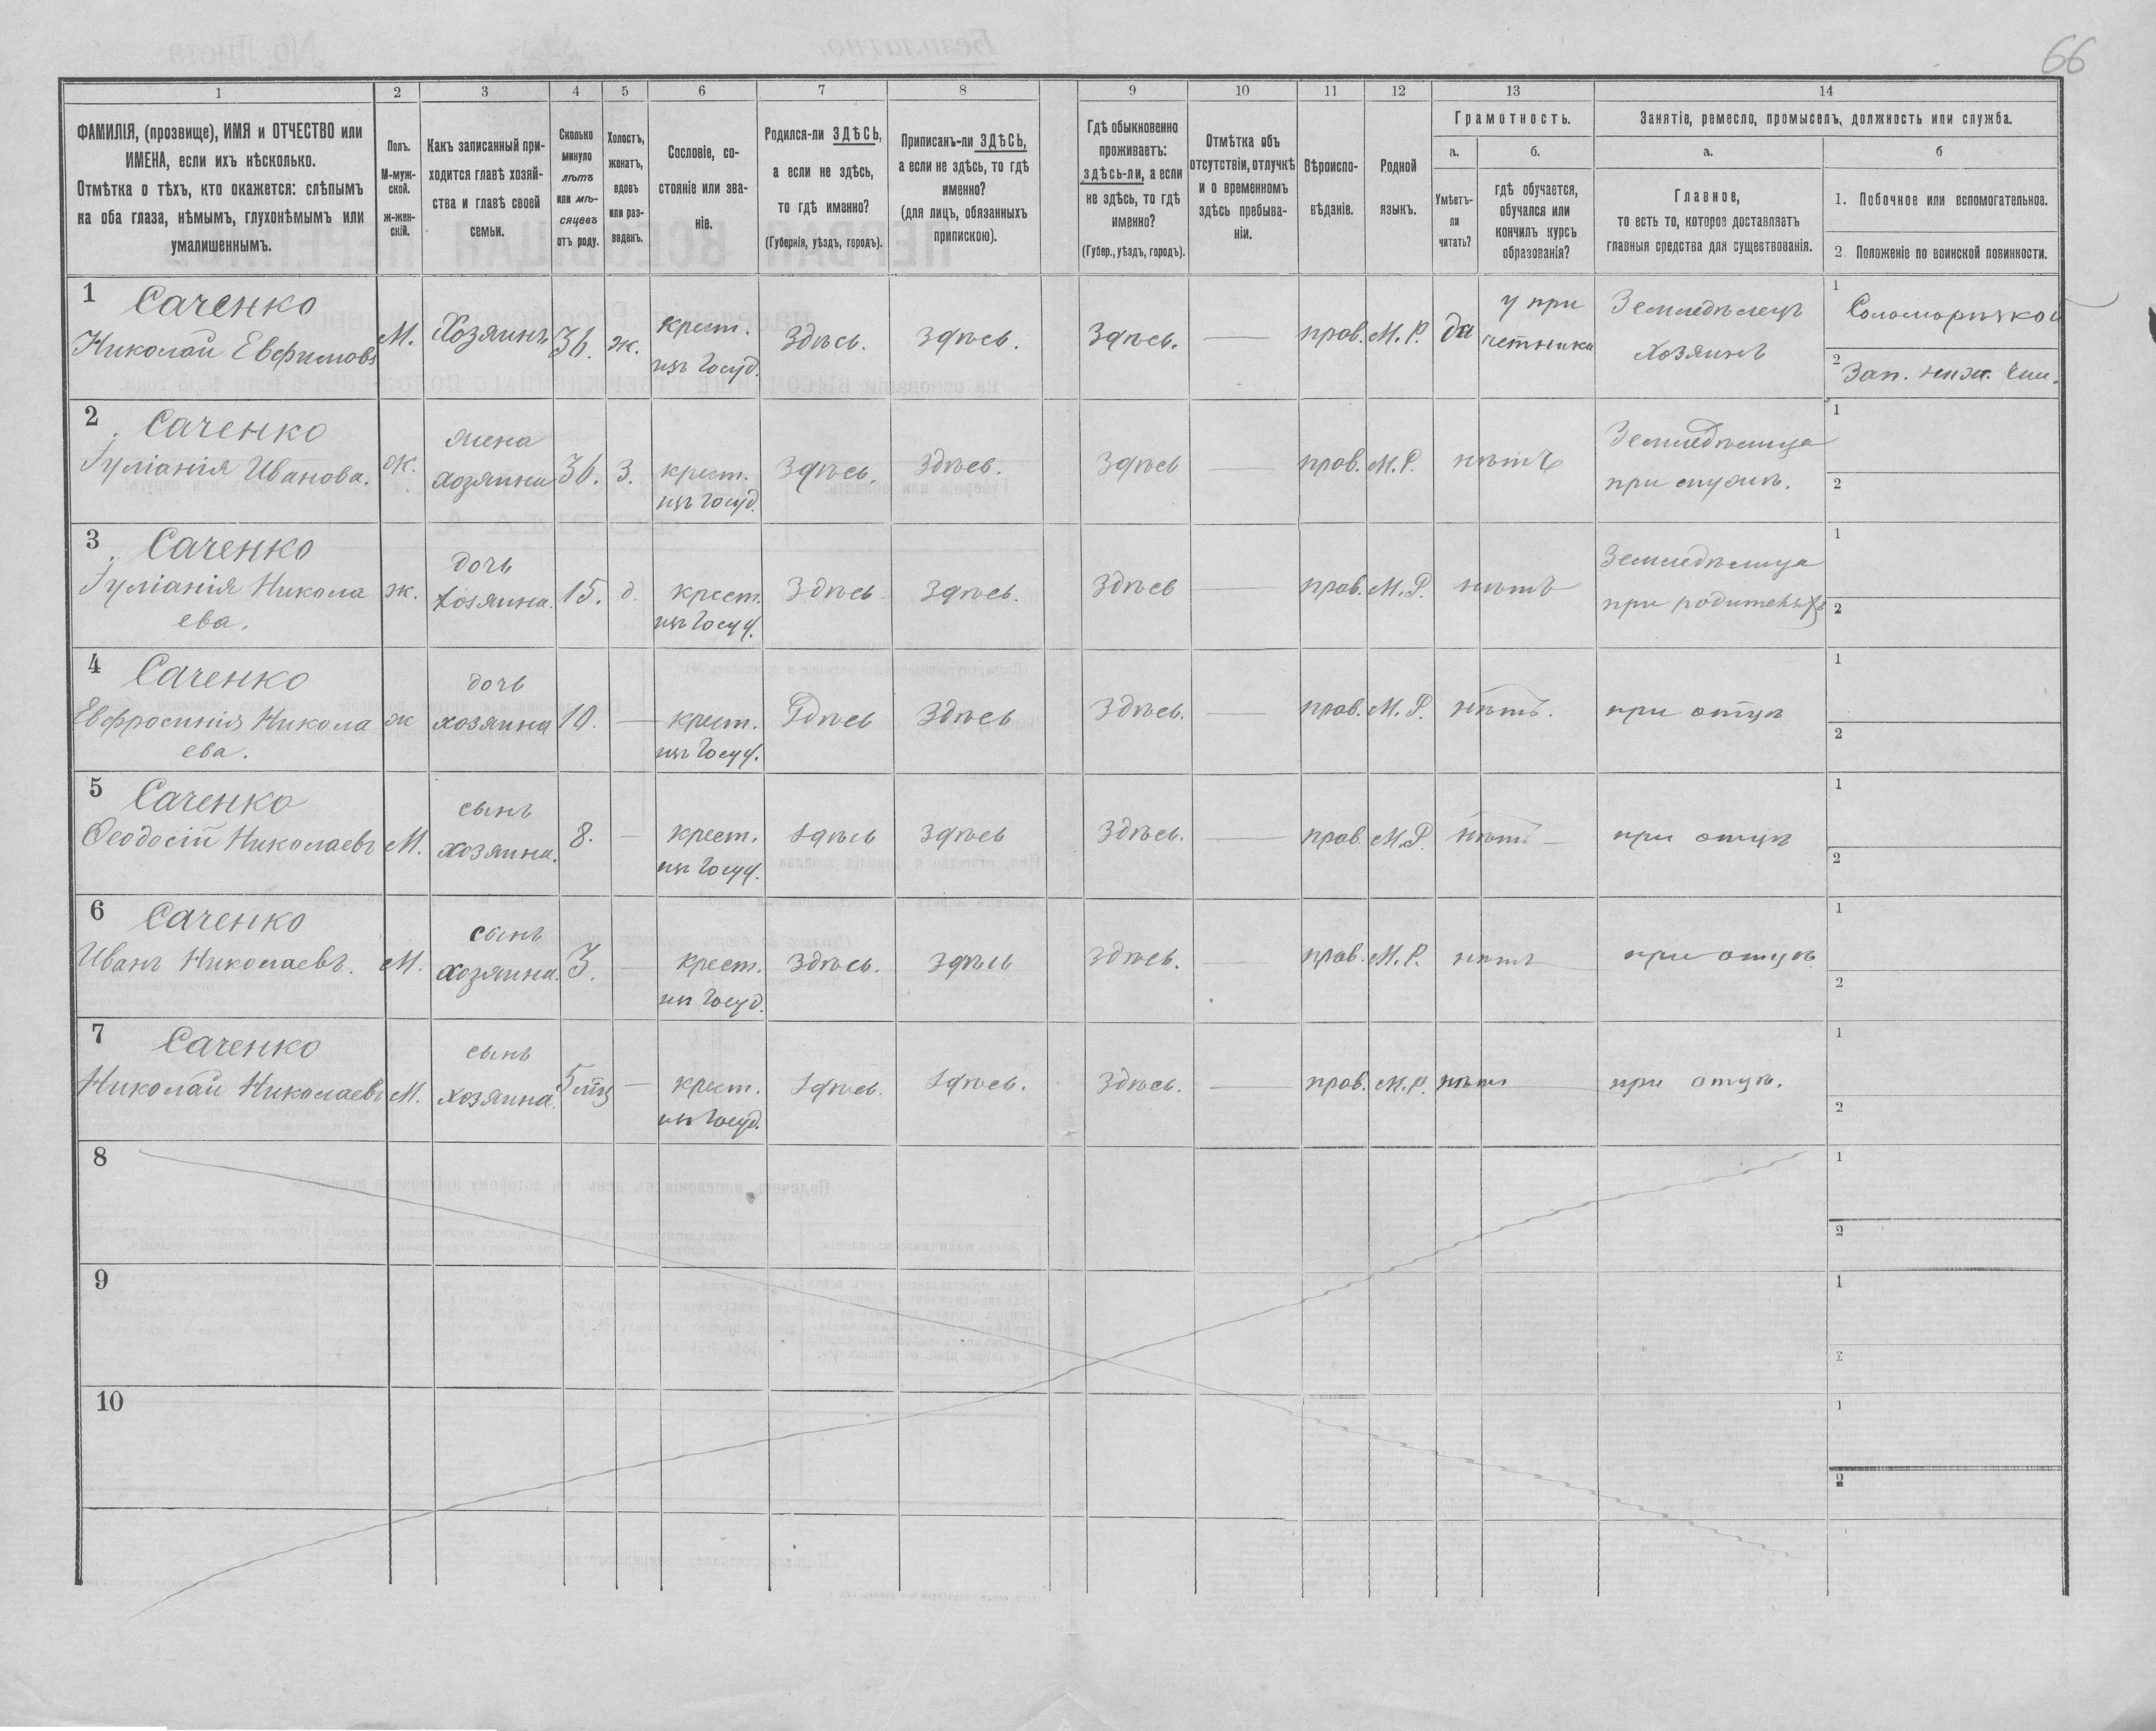 66
1 2 3 4 5 6 7 8 9 10 11 12 13 14
ФАМИЛІЯ, (прозвище), ИМЯ и ОТЧЕСТВО или
ИМЕНА, если ихъ нѣсколько.
Отмѣтка о тѣхъ, кто окажется: слѣпымъ
на оба глаза, нѣмымъ, глухонѣмымъ или
умалишеннымъ.
Полъ.
М-муж-
ской.
ж-жен-
скій.
Какъ записанный при-
ходится главѣ хозяй-
ства и главѣ своей
семьи.
Сколько
минуло
лѣтъ
или мѣ-
сяцевъ
отъ роду.
Холостъ,
женатъ,
вдовъ
или раз-
веденъ.
Сословіе, со-
стояніе или зва-
ніе.
Родился-ли ЗДѢСЬ,
а если не здѣсь,
то гдѣ именно?
(Губернія, уѣздъ, городъ).
Приписанъ-ли ЗДѢСЬ,
а если не здѣсь, то гдѣ
именно?
(для лицъ, обязанныхъ
припискою).
Гдѣ обыкновенно
проживаетъ:
здѣсь-ли, а если
не здѣсь, то гдѣ
именно?
(Губер., уѣздъ, городъ).
Отмѣтка объ
отсутствіи, отлучкѣ
и о временномъ
здѣсь пребыва-
ніи.
Вѣроиспо-
вѣданіе.
Родной
языкъ.
Грамотность.
а.
Умѣетъ-
ли
читать?
б.
гдѣ обучается,
обучался или
кончилъ курсъ
образованія?
Занятіе, ремесло, промыселъ, должность или служба.
а.
Главное,
то есть то, которое доставляетъ
главныя средства для существованія.
б
1. Побочное или вспомогательное.
2. Положеніе по воинской повинности.
1 Саченко
Николай Евфимовъ М. Хозяинъ 36. ж. крест. Здѣсь. Здѣсь. Здѣсь. — прав. М. Р. да у при Земледѣлецъ 1
изъ Госуд. четника хозяинъ 2 Зап. ниж. Чин.
2 Саченко жена Земледѣлица 1
Іуліанія Иванова. ж. хозяина 36. З. крест. Здѣсь. Здѣсь. Здѣсь — прав. М. Р. нѣтъ при мужѣ. 2
изъ Госуд.
3 Саченко дочь Земледѣлица 1
Іуліанія Никола ж. хозяина. 15. д. крест. Здѣсь. Здѣсь. Здѣсь — прав. М. Р. нѣтъ при родителяхъ 2
ева. изъ Госуд.
4 Саченко дочь 1
Евфросинія Никола ж хозяина 10. — крест. Здѣсь Здѣсь Здѣсь. — прав. М. Р. нѣтъ. при отцѣ 2
ева. изъ Госуд.
5 Саченко сынъ 1
Феодосій Николаевъ М. хозяина. 8. — крест. Здѣсь Здѣсь Здѣсь. — прав. М. Р. нѣтъ — при отцѣ 2
изъ Госуд.
6 Саченко сынъ 1
Иванъ Николаевъ. М. хозяина. 3. — крест. Здѣсь. Здѣсь Здѣсь. — прав. М. Р. нѣтъ при отцѣ 2
изъ Госуд.
7 Саченко сынъ 1
Николай Николаевъ М. хозяина 5 мц — крест. Здѣсь. Здѣсь. Здѣсь. — прав. М. Р. нѣтъ при отцѣ. 2
изъ Госуд.
8 1
2
9 1
2
10 1
2